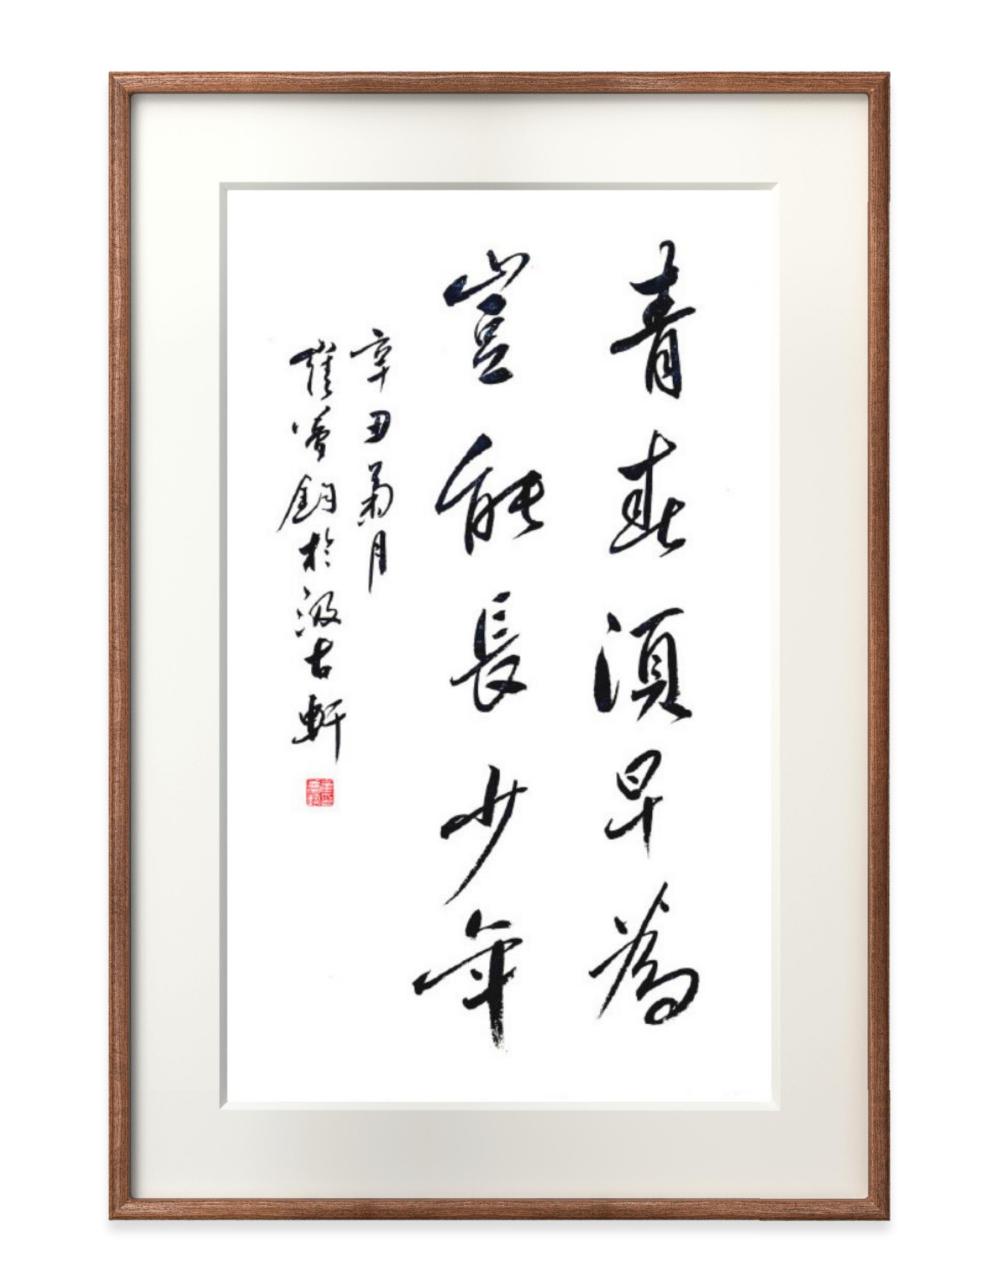 青春須早為
豈能長少年
辛丑菊月
崔夢鈞於汲古軒